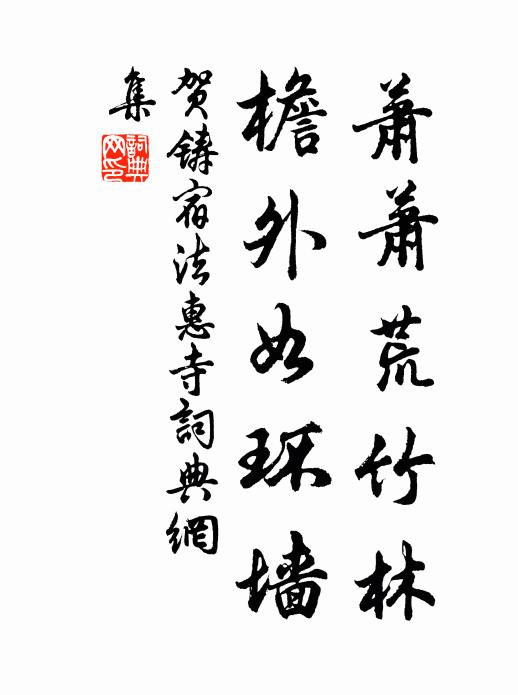 蕭蕭荒竹林
檐外如环墙
贺铸宿法惠寺詞典網
集
詞典
网印